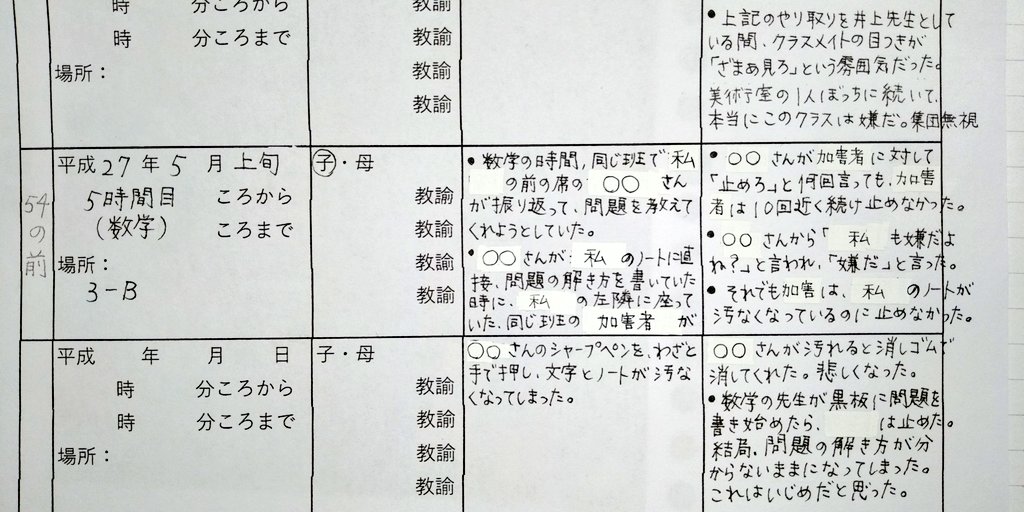 時 分ころから
時 分ころまで
場所：
教諭
教諭
教諭
教諭
●上記のやり取りを井上先生として
いる間、クラスメイトの目つきが
「ざまあ見ろ」という雰囲気だった。
美術室の1人ぼっちに続いて、
本当にこのクラスは嫌だ。集団無視
54の前
平成 27 年 5 月 上旬
5時間目 ころから
（数学） ころまで
場所：
3-B
子・母
教諭
教諭
教諭
教諭
●数学の時間、同じ班で 私
の前の席の ○○ さん
が振り返って、問題を教えて
くれようとしていた。
●○○ さんが 私 のノートに直
接、問題の解き方を書いていた
時に、私 の左隣に座って
いた、同じ班の 加害者 が
●○○ さんが加害者に対して
「止めろ」と何回言っても、加害
者は10回近く続け止めなかった。
●○○ さんから「 私 も嫌だよ
ね？」と言われ、「嫌だ」と言った。
●それでも加害は、私 のノートが
汚なくなっているのに止めなかった。
平成 年 月 日
時 分ころから
時 分ころまで
場所：
子・母
教諭
教諭
教諭
教諭
○○ さんのシャープペンを、わざと
手で押し、文字とノートが汚な
くなってしまった。
○○ さんが汚れると消しゴムで
消してくれた。悲しくなった。
●数学の先生が黒板に問題を
書き始めたら、 は止めた。
結局、問題の解き方が分
からないままになってしまった。
これはいじめだと思った。